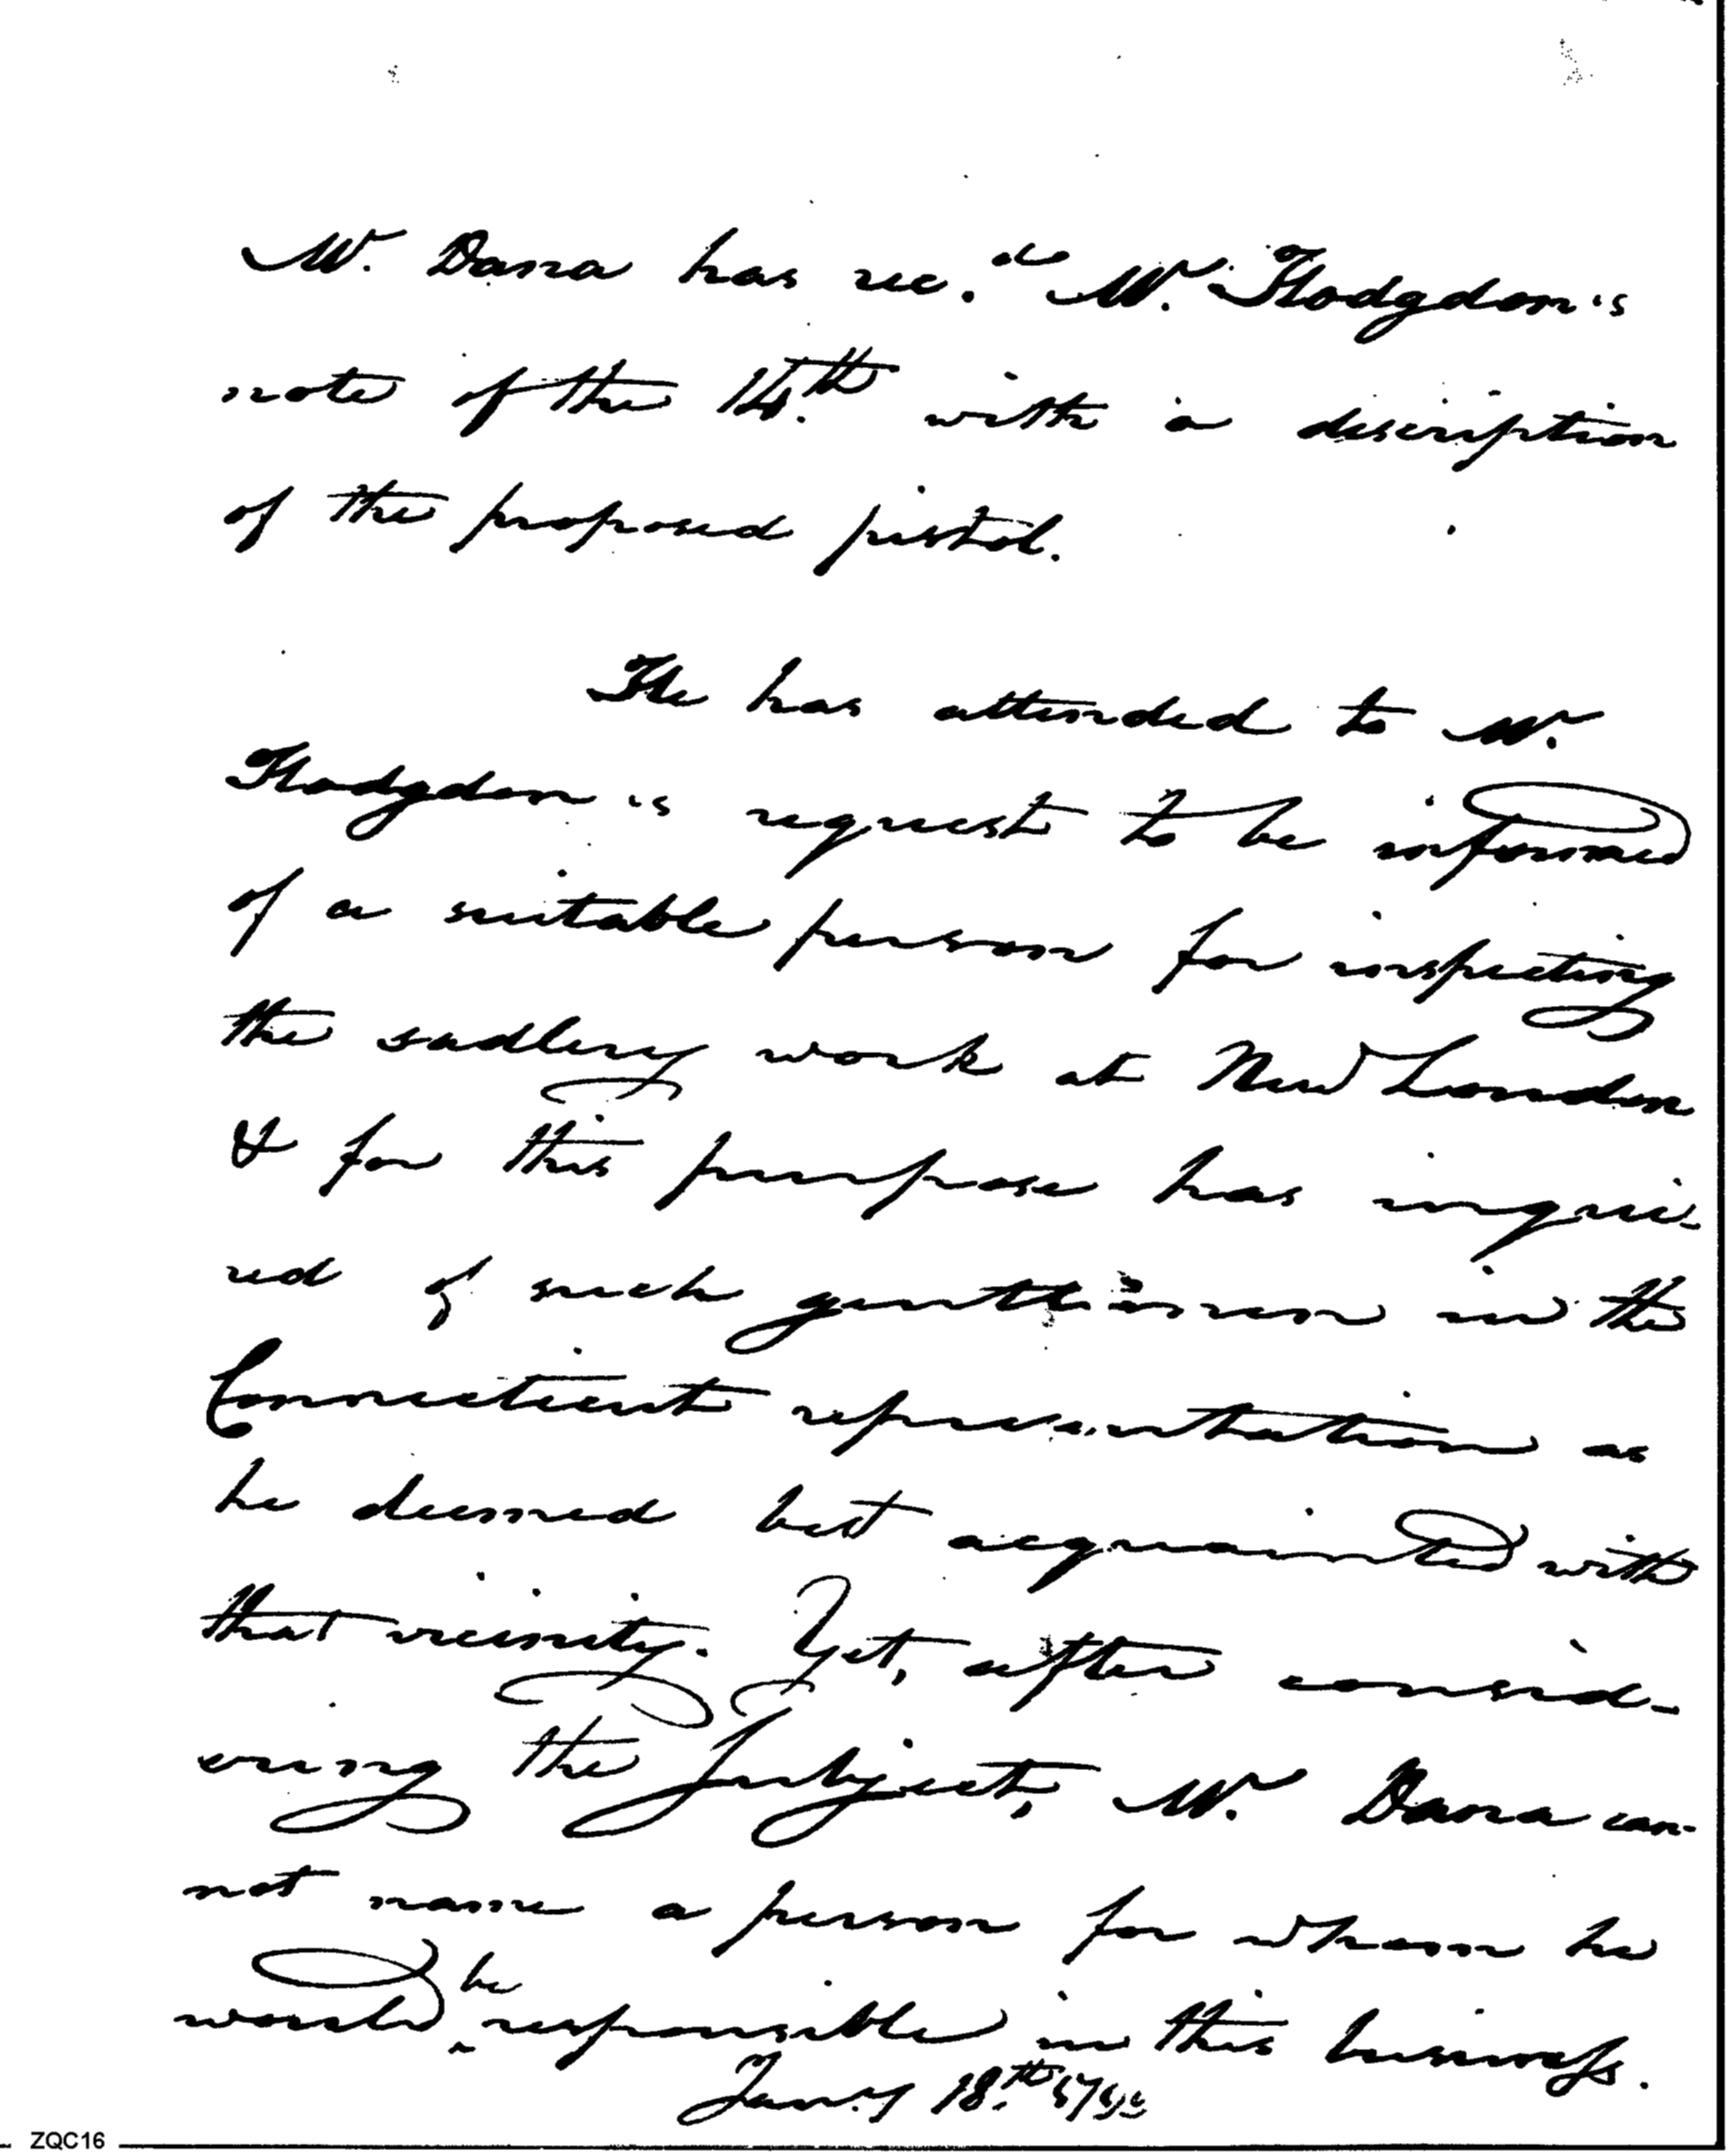 Mr. Dana has rec.d Mr. Hodgdon's
note of the 14.th with a description
of the proposed pistol.
He has attended to Mr.
Hodgdon's request to be informed
of a suitable person for inspecting
the sadlery work at New London
& for this purpose has inqui-
red of such gentlemen in the
Connecticut representation as
he deemed best acquainted with
that vicinity. Yet, after consid-
ering the subject, Mr. Dana can-
not name a person for whom he
would be responsible in this business.
Jan.y 18.th
ZQC16